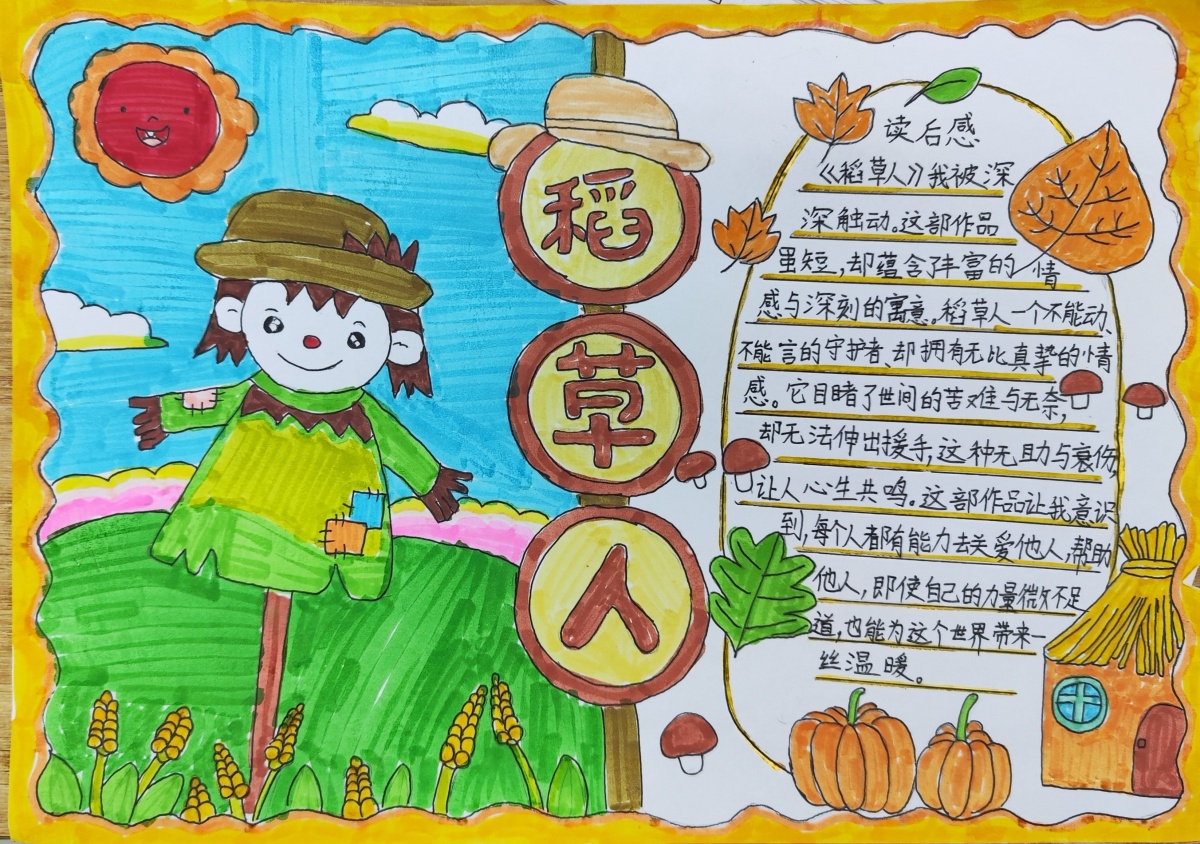 稻
草
人
读后感
《稻草人》我被深
深触动。这部作品
虽短,却蕴含了丰富的情
感与深刻的寓意。稻草人一个不能动、
不能言的守护者、却拥有无比真挚的情
感。它目睹了世间的苦难与无奈,
却无法伸出援手,这种无助与哀伤
让人心生共鸣。这部作品让我意识
到,每个人都有能力去关爱他人,帮助
他人,即使自己的力量微不足
道,也能为这个世界带来一
丝温暖。